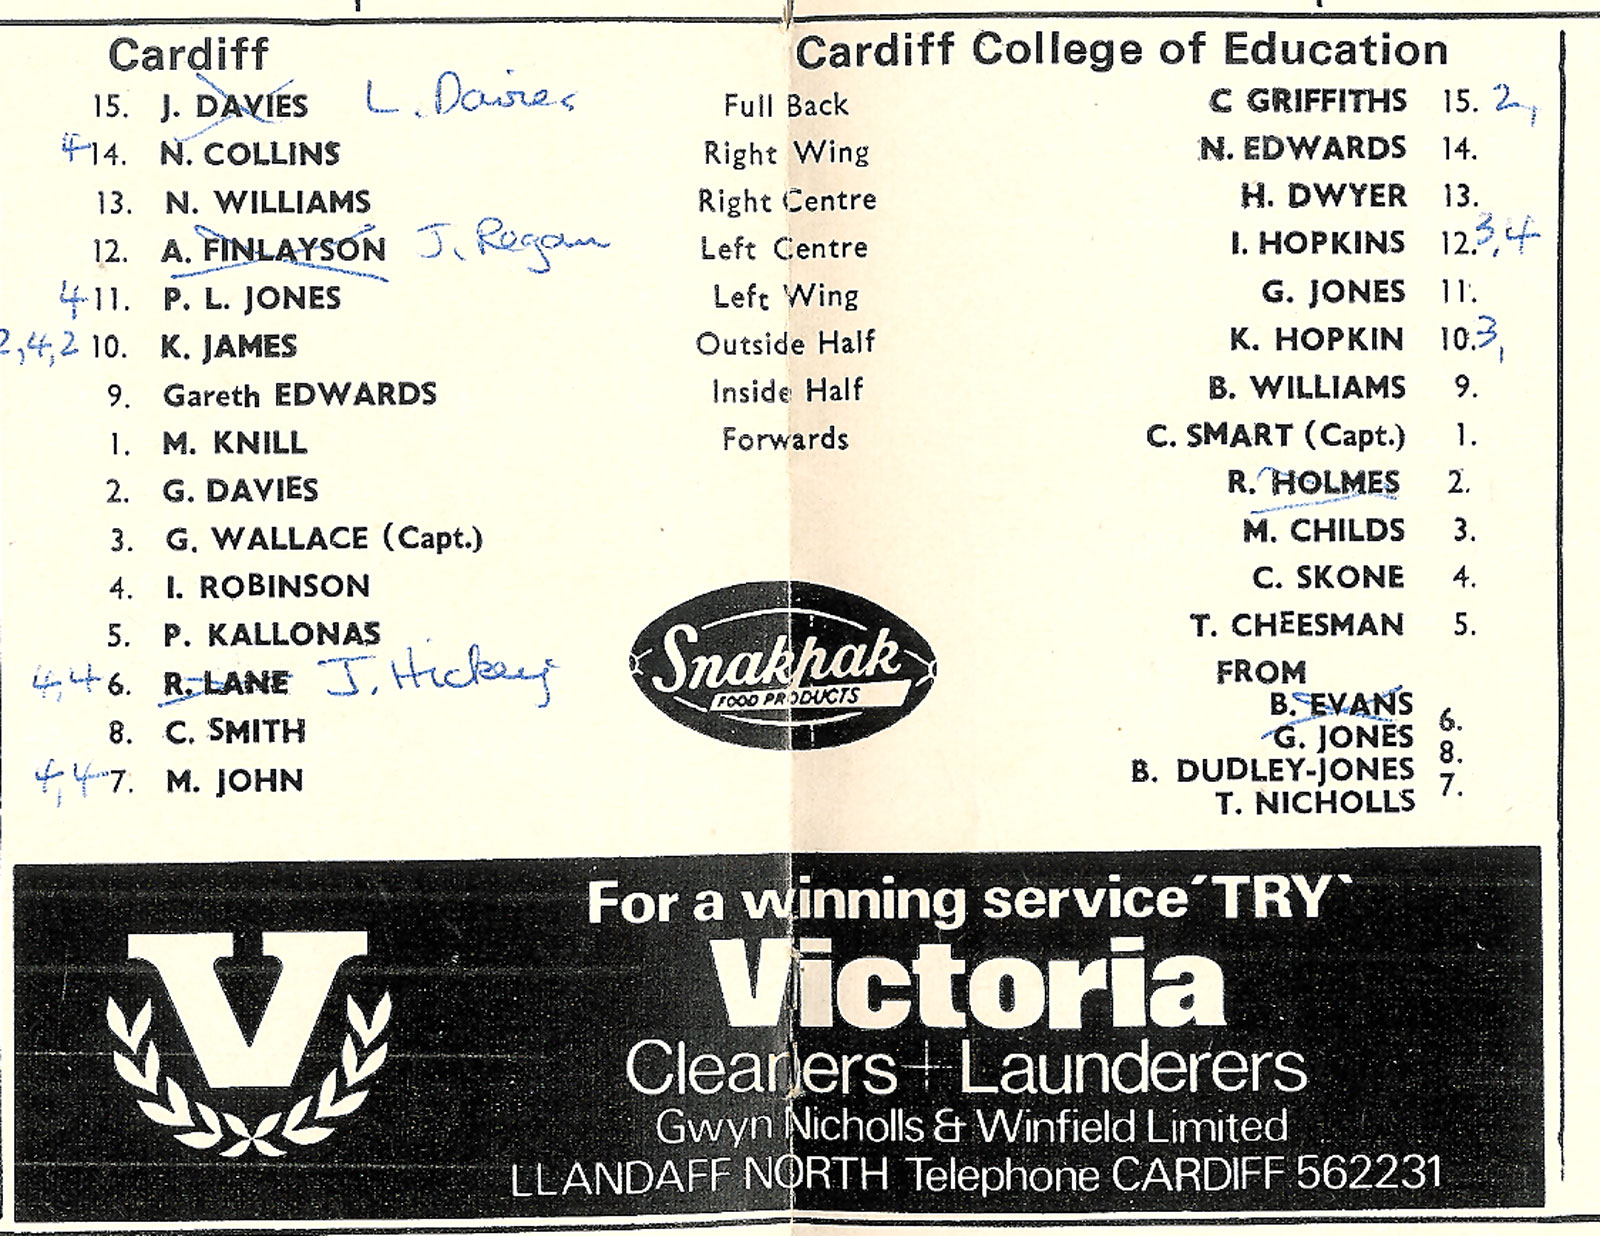 Cardiff Cardiff College of Education
15. J. DAVIES L. Davies Full Back C GRIFFITHS 15. 2,
4 14. N. COLLINS Right Wing N. EDWARDS 14.
13. N. WILLIAMS Right Centre H. DWYER 13.
12. A. FINLAYSON J. Regan Left Centre I. HOPKINS 12. 3,4
4 11. P. L. JONES Left Wing G. JONES 11.
2,4,2 10. K. JAMES Outside Half K. HOPKIN 10. 3,
9. Gareth EDWARDS Inside Half B. WILLIAMS 9.
1. M. KNILL Forwards C. SMART (Capt.) 1.
2. G. DAVIES R. HOLMES 2.
3. G. WALLACE (Capt.) M. CHILDS 3.
4. I. ROBINSON C. SKONE 4.
5. P. KALLONAS T. CHEESMAN 5.
4,4 6. R. LANE J. Hickey FROM
B. EVANS 6.
8. C. SMITH G. JONES 8.
4,4 7. M. JOHN B. DUDLEY-JONES 7.
T. NICHOLLS
Snakpak
FOOD PRODUCTS
For a winning service ´TRY`
V Victoria
Cleaners + Launderers
Gwyn Nicholls & Winfield Limited
LLANDAFF NORTH Telephone CARDIFF 562231